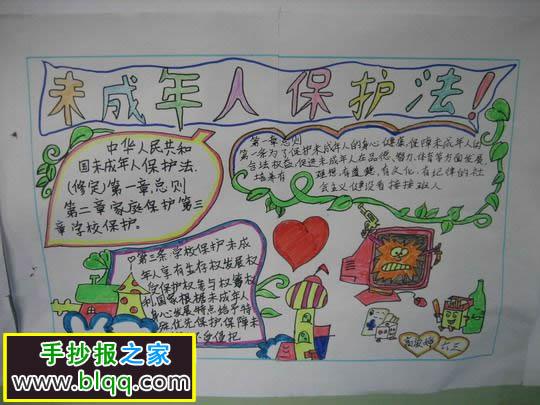 未成年人保护法!
中华人民共和
国未成年人保护法.
(修定)第一章总则
第二章家庭保护第三
章学校保护。
第一章总则
第一条为了保护未成年人的身心健康,保障未成年人的
合法权益,促进未成年人在品德、智力、体育等方面发展,
培养有理想、有道德、有文化、有纪律的社
会主义建设者接班人
第三条学校保护未成
年人享有生存权发展权
受保护权参与权等权
利国家根据未成年人
身心发展特点给予特
优先保护保障未
六三
手抄报之家
www.blqq.com